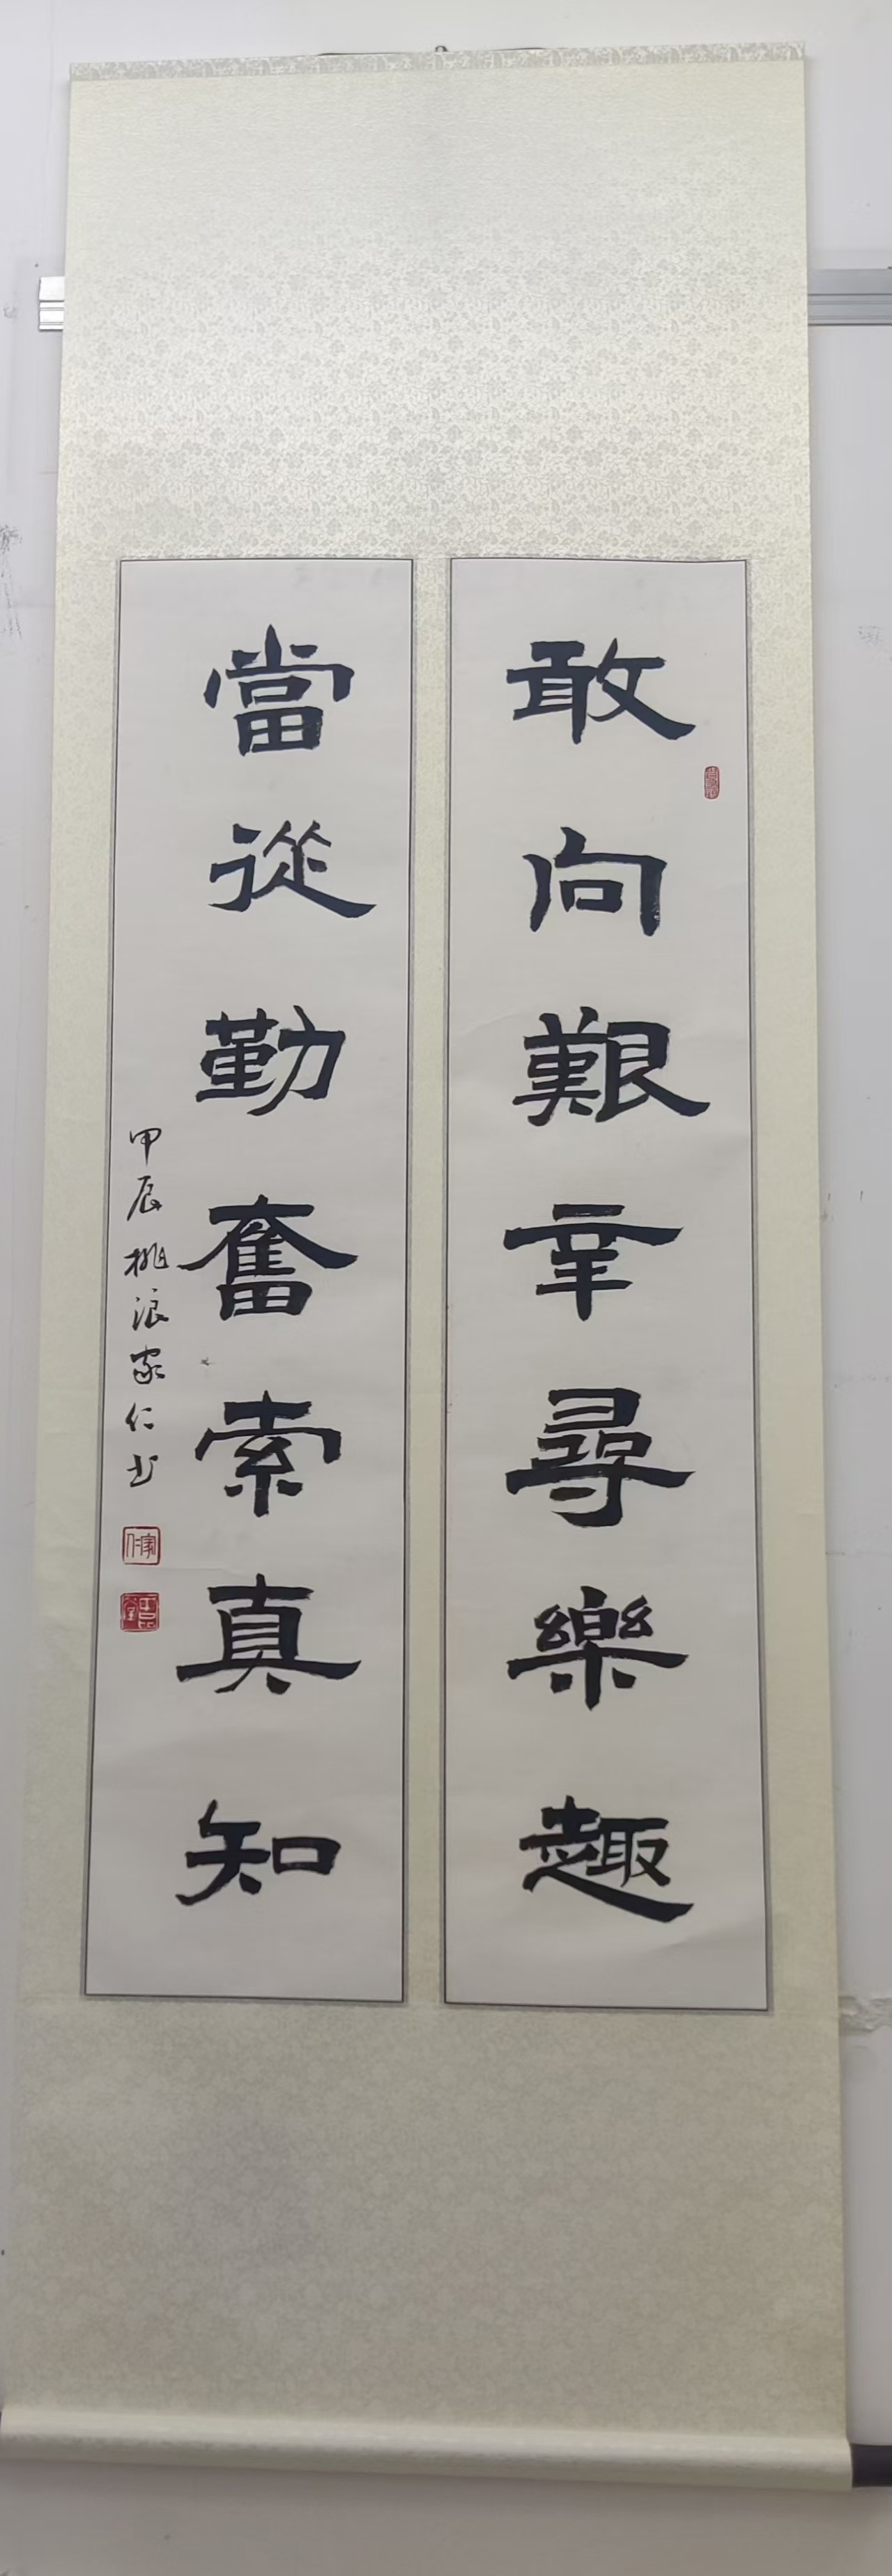 敢向艱辛尋樂趣
當從勤奮索真知
甲辰桃浪家仁书
家仁